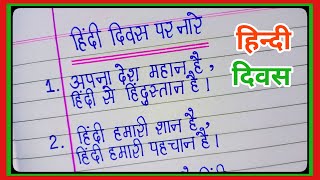 हिंदी दिवस पर नारे
हिन्दी
दिवस
1. अपना देश महान है,
हिंदी से हिंदुस्तान है।
2. हिंदी हमारी शान है,
हिंदी हमारी पहचान है।